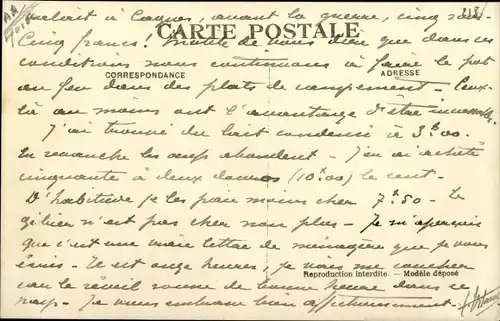 valait à Cagnes, avant la guerre, cinq sous
CARTE POSTALE
Cinq francs! Inutile de vous dire que dans ces
conditions nous continuons à faire le pot
CORRESPONDANCE
ADRESSE
au feu dans des plats de campement. Ceux-
là au moins ont l'avantage d'être incassables.
J'ai trouvé du lait condensé à 3f00.
En revanche les œufs abondent. J'en ai acheté
cinquante à deux douros (10f00) le cent.
D'habitude je les paie moins cher 7f50. Le
gibier n'est pas cher non plus. Je m'aperçois
que c'est une vraie lettre de ménagère que je vous
écris. Il est onze heures, je vais me coucher
Reproduction interdite. — Modèle déposé
car le réveil sonne de bonne heure dans ce
pays. Je vous embrasse bien affectueusement.